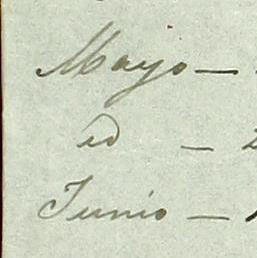 Mayo —
id —
Junio —